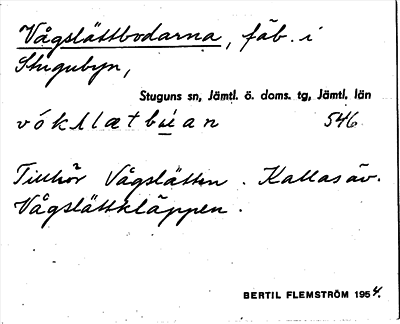 Vågslåttbodarna, fäb. i
Stugubyn,
Stuguns sn, Jämtl. ö. doms. tg, Jämtl. län
546
Tillhör Vågslåtten. Kallas äv.
Vågslåttkläppen.
BERTIL FLEMSTRÖM 1954.